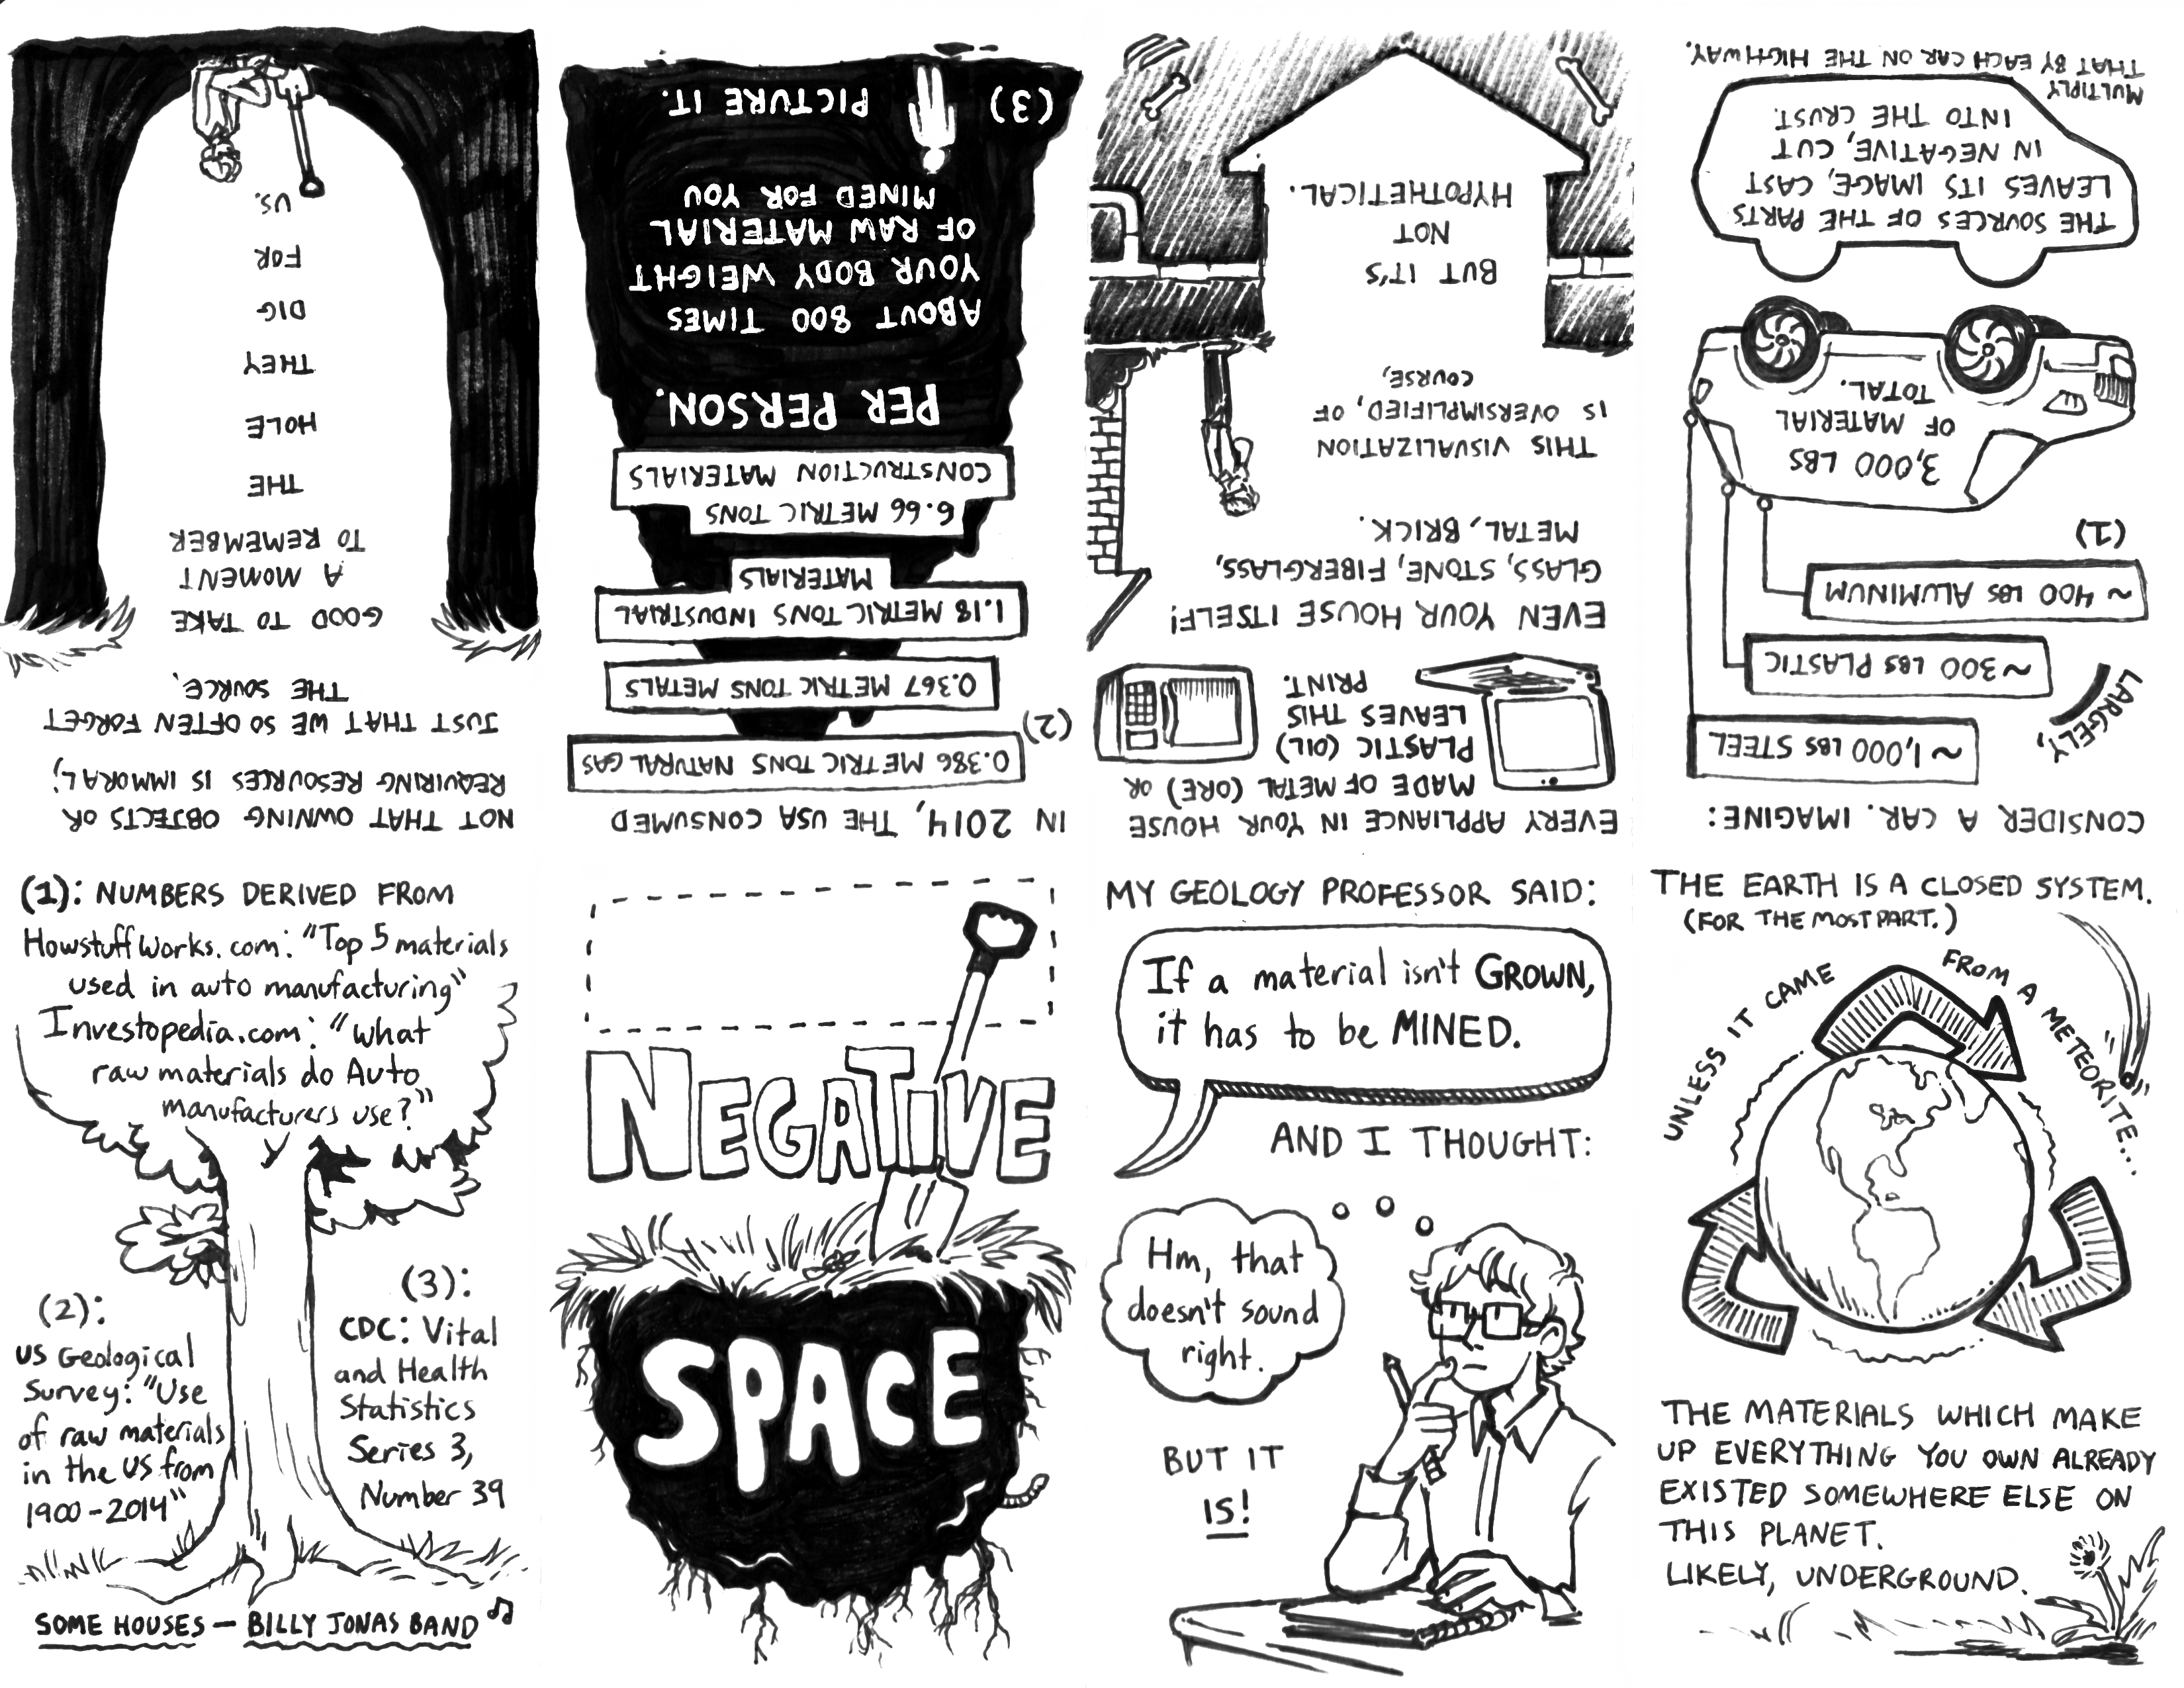 NEGATIVE
SPACE
MY GEOLOGY PROFESSOR SAID:
If a material isn't GROWN,
it has to be MINED.
AND I THOUGHT:
Hm, that
doesn't sound
right.
BUT IT
IS!
THE EARTH IS A CLOSED SYSTEM.
(FOR THE MOST PART.)
UNLESS IT CAME FROM A METEORITE...
THE MATERIALS WHICH MAKE
UP EVERYTHING YOU OWN ALREADY
EXISTED SOMEWHERE ELSE ON
THIS PLANET.
LIKELY, UNDERGROUND.
CONSIDER A CAR. IMAGINE:
LARGELY,
~1,000 LBS STEEL
~300 LBS PLASTIC
~400 LBS ALUMINUM
(1)
3,000 LBS
OF MATERIAL
TOTAL.
THE SOURCES OF THE PARTS
LEAVES ITS IMAGE, CAST
IN NEGATIVE, CUT
INTO THE CRUST.
MULTIPLY
THAT BY EACH CAR ON THE HIGHWAY.
EVERY APPLIANCE IN YOUR HOUSE
MADE OF METAL (ORE) OR
PLASTIC (OIL)
LEAVES THIS
PRINT.
EVEN YOUR HOUSE ITSELF!
GLASS, STONE, FIBERGLASS,
METAL, BRICK.
THIS VISUALIZATION
IS OVERSIMPLIFIED, OF
COURSE,
BUT IT'S
NOT
HYPOTHETICAL.
IN 2014, THE USA CONSUMED
0.386 METRIC TONS NATURAL GAS
(2)
0.367 METRIC TONS METALS
1.18 METRIC TONS INDUSTRIAL
MATERIALS
6.66 METRIC TONS
CONSTRUCTION MATERIALS
PER PERSON.
ABOUT 800 TIMES
YOUR BODY WEIGHT
OF RAW MATERIAL
MINED FOR YOU
(3)
PICTURE IT.
NOT THAT OWNING OBJECTS OR
REQUIRING RESOURCES IS IMMORAL;
JUST THAT WE SO OFTEN FORGET
THE SOURCE.
GOOD TO TAKE
A MOMENT
TO REMEMBER
THE
HOLE
THEY
DIG
FOR
US.
(1): NUMBERS DERIVED FROM
Howstuffworks.com: "Top 5 materials
used in auto manufacturing"
Investopedia.com: "What
raw materials do Auto
manufacturers use?"
(2):
US Geological
Survey: "Use
of raw materials
in the US from
1900-2014"
(3):
CDC: Vital
and Health
Statistics
Series 3,
Number 39
SOME HOUSES - BILLY JONAS BAND